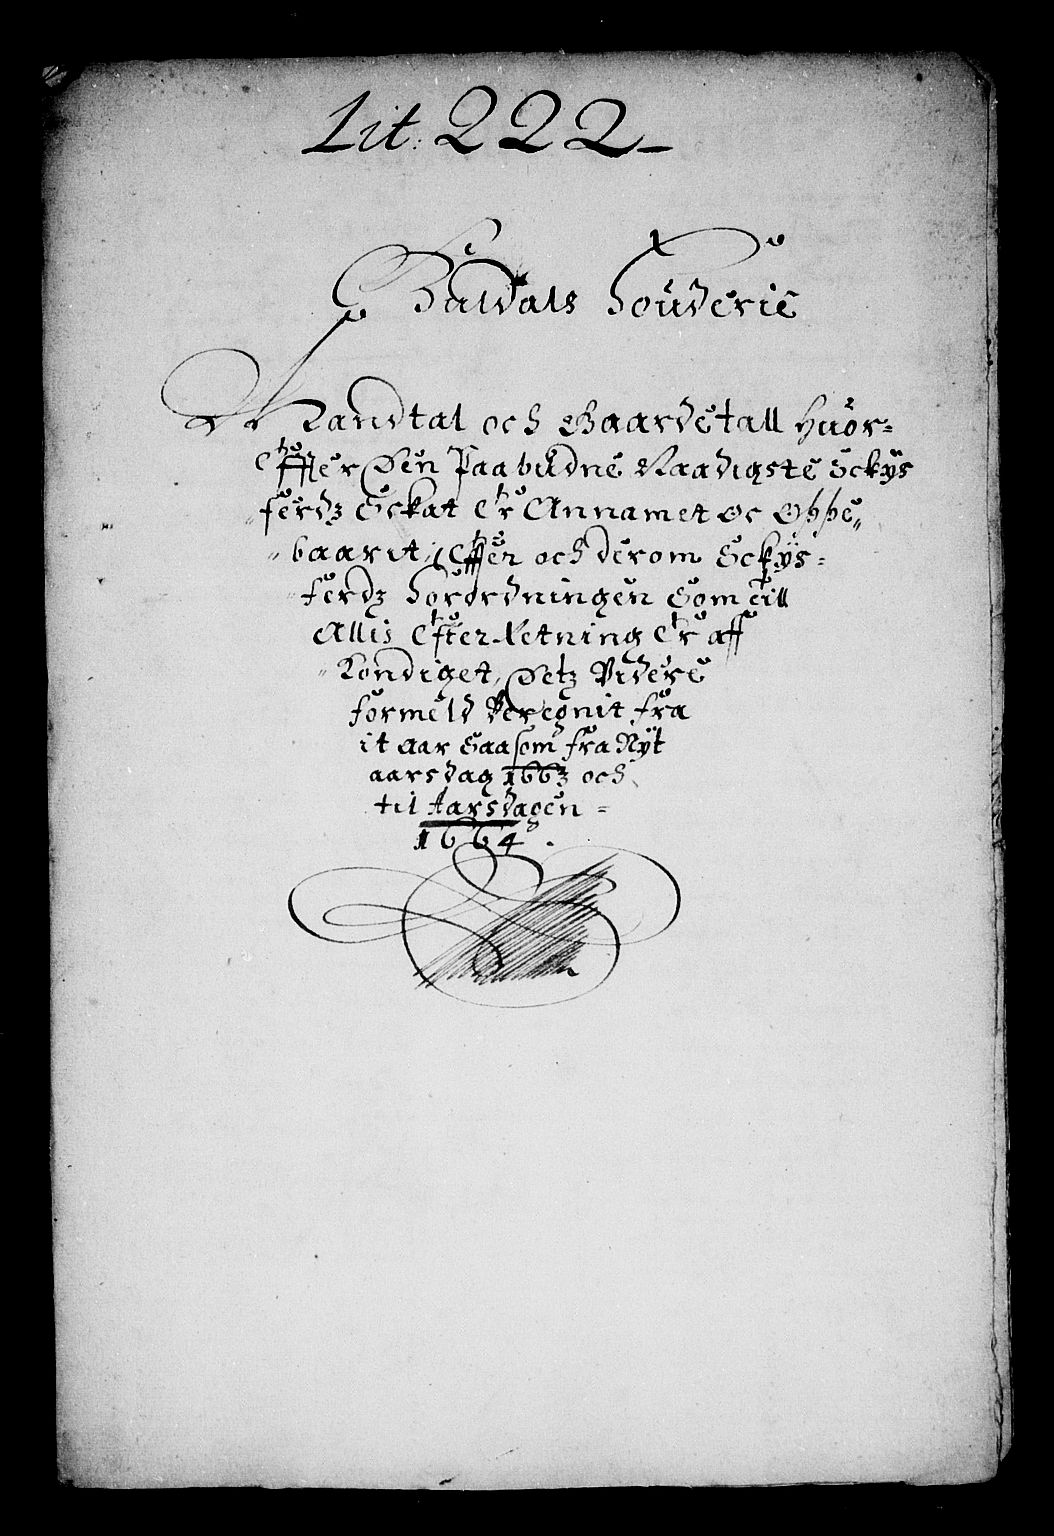 Lit: 222
Baldals Fouderie
Mandtal och Gaardetall Huor-
Effter Den Paabudne Naadigste Schys
ferdz Schat Er Annamet oc Oppe,,
,,baarit, Effter och derom Schys-
ferdz Forordningen Som till
Allis Efter Retning Er aff
Kondiget, Detz Videre
formeld Beregnit fra
it aar Saasom fra Nyt
aarsdag 1663 och
til Aarsdagen -
1664.